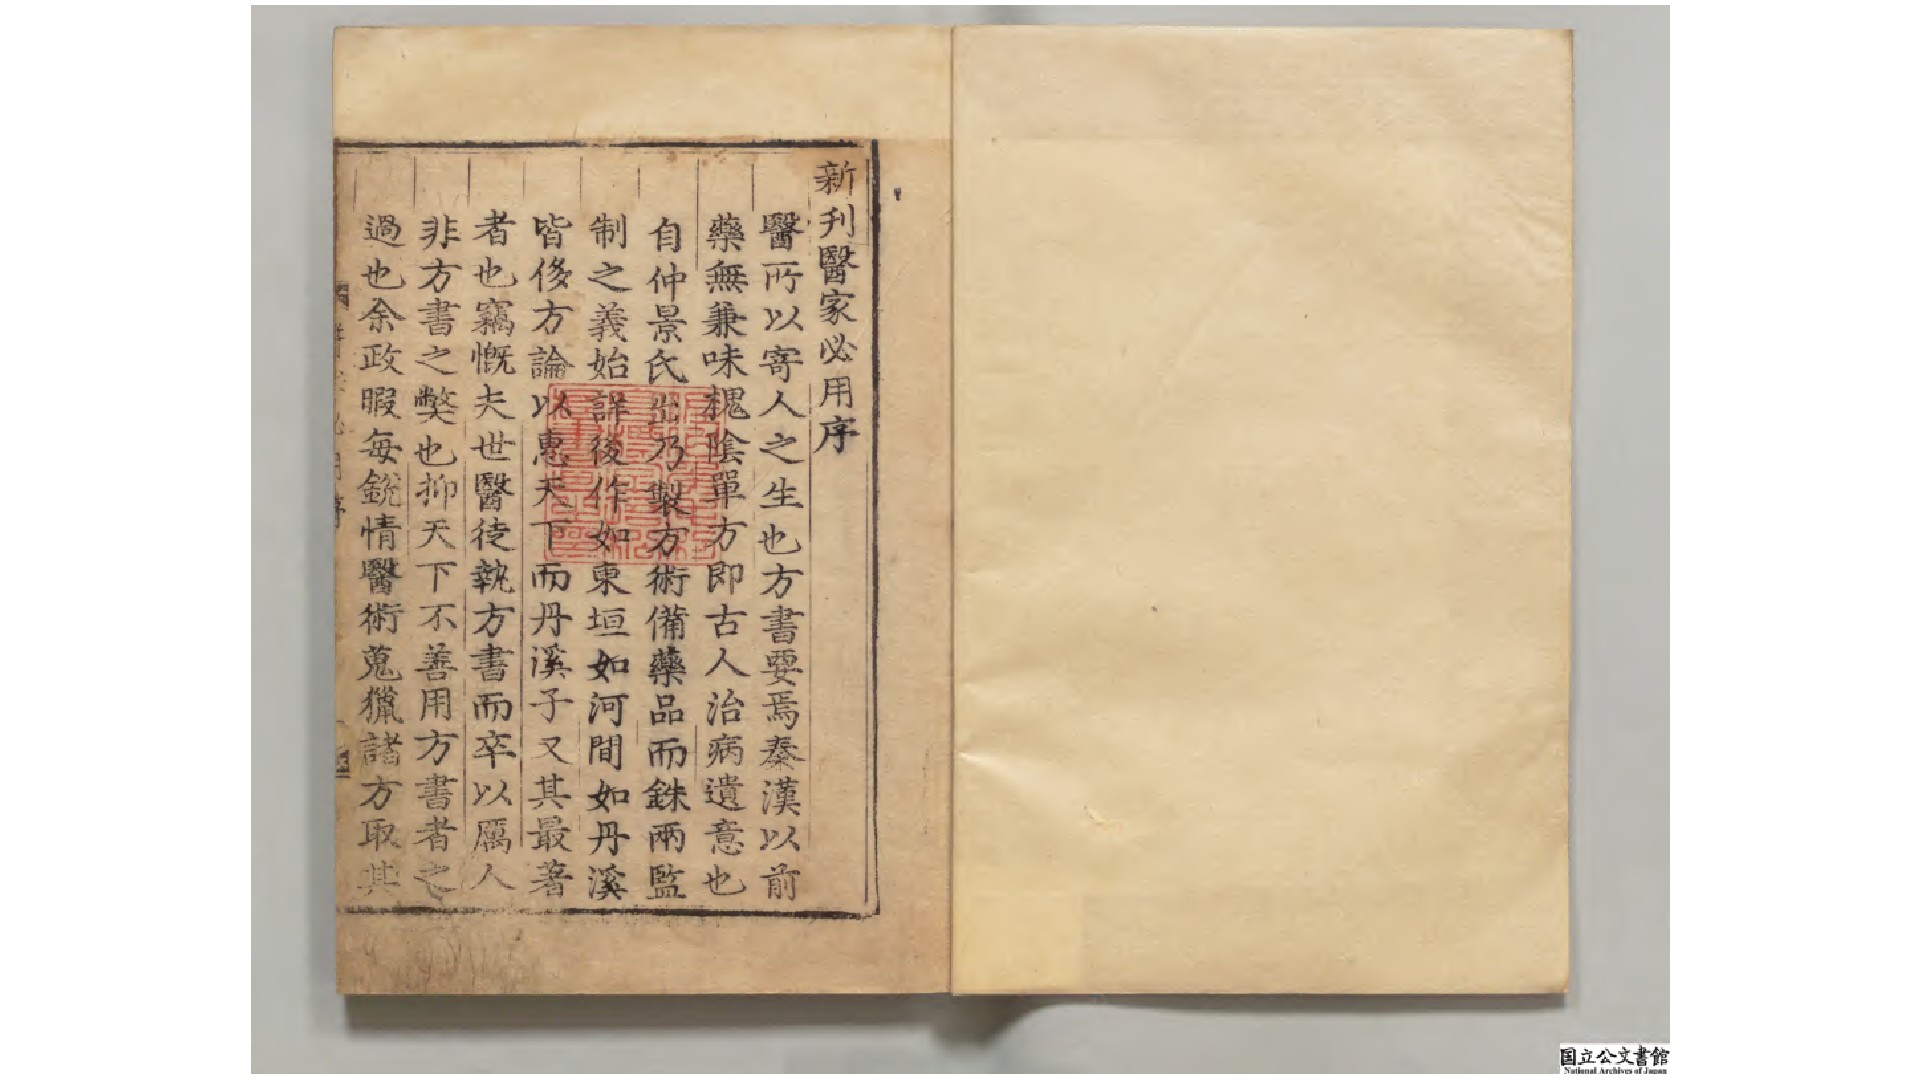 新刋醫家必用序
醫所以寄人之生也方書要焉秦漢以前
藥無兼味槐陰單方即古人治病遺意也
自仲景氏出乃製方術備藥品而銖兩監
制之義始詳後作如東垣如河間如丹溪
皆後方論以惠天下而丹溪子又其最著
者也竊慨夫世醫徒執方書而卒以厲人
非方書之獘也抑天下不善用方書者之
過也余政暇每銳情醫術蒐獵諸方取其
国立公文書館
National Archives of Japan